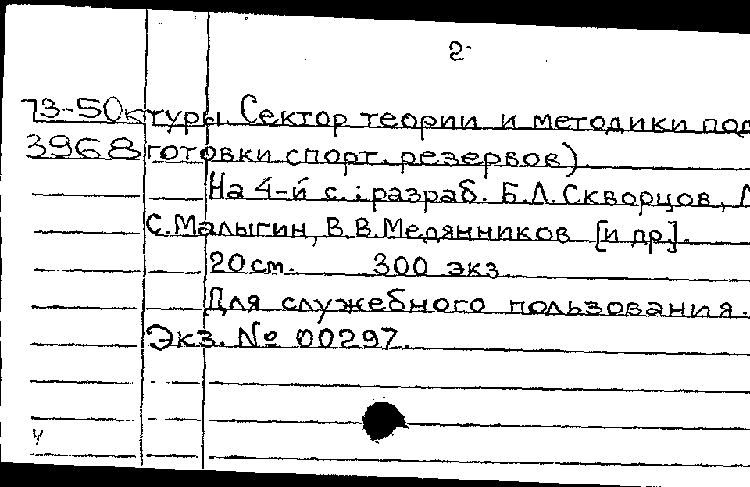 2
73-50ктуры. Сектор теории и методики под
3968 готовки спорт. резервов)
На 4-й с.: разраб. Б.Л. Скворцов,
С. Малыгин, В.В. Медянников [и др.].
20 см. 300 экз.
Для служебного пользования.
Экз. № 00297.